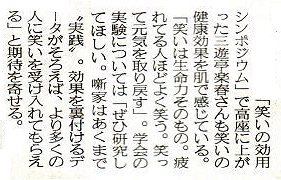 「笑いの効用
シンポジウム」で高座に上が
った三遊亭楽春さんも笑いの
健康効果を肌で感じている。
「笑いは生命力そのもの。疲
れてる人ほどよく笑う。笑っ
て元気を取り戻す」。学会の
実験については「ぜひ研究し
てほしい。噺家はあくまで
〝実践〟。効果を裏付けるデ
ータがそろえば、より多くの
人に笑いを受け入れてもらえ
る」と期待を寄せる。